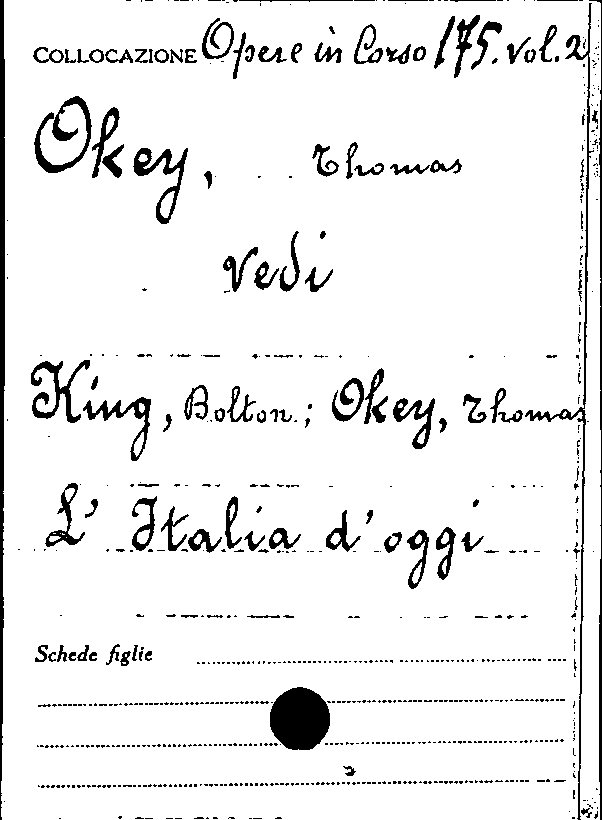 COLLOCAZIONE Opere in Corso 175. Vol. 2
Okey, Thomas
vedi
King, Bolton; Okey, Thomas
L' Italia d'oggi
Schede figlie